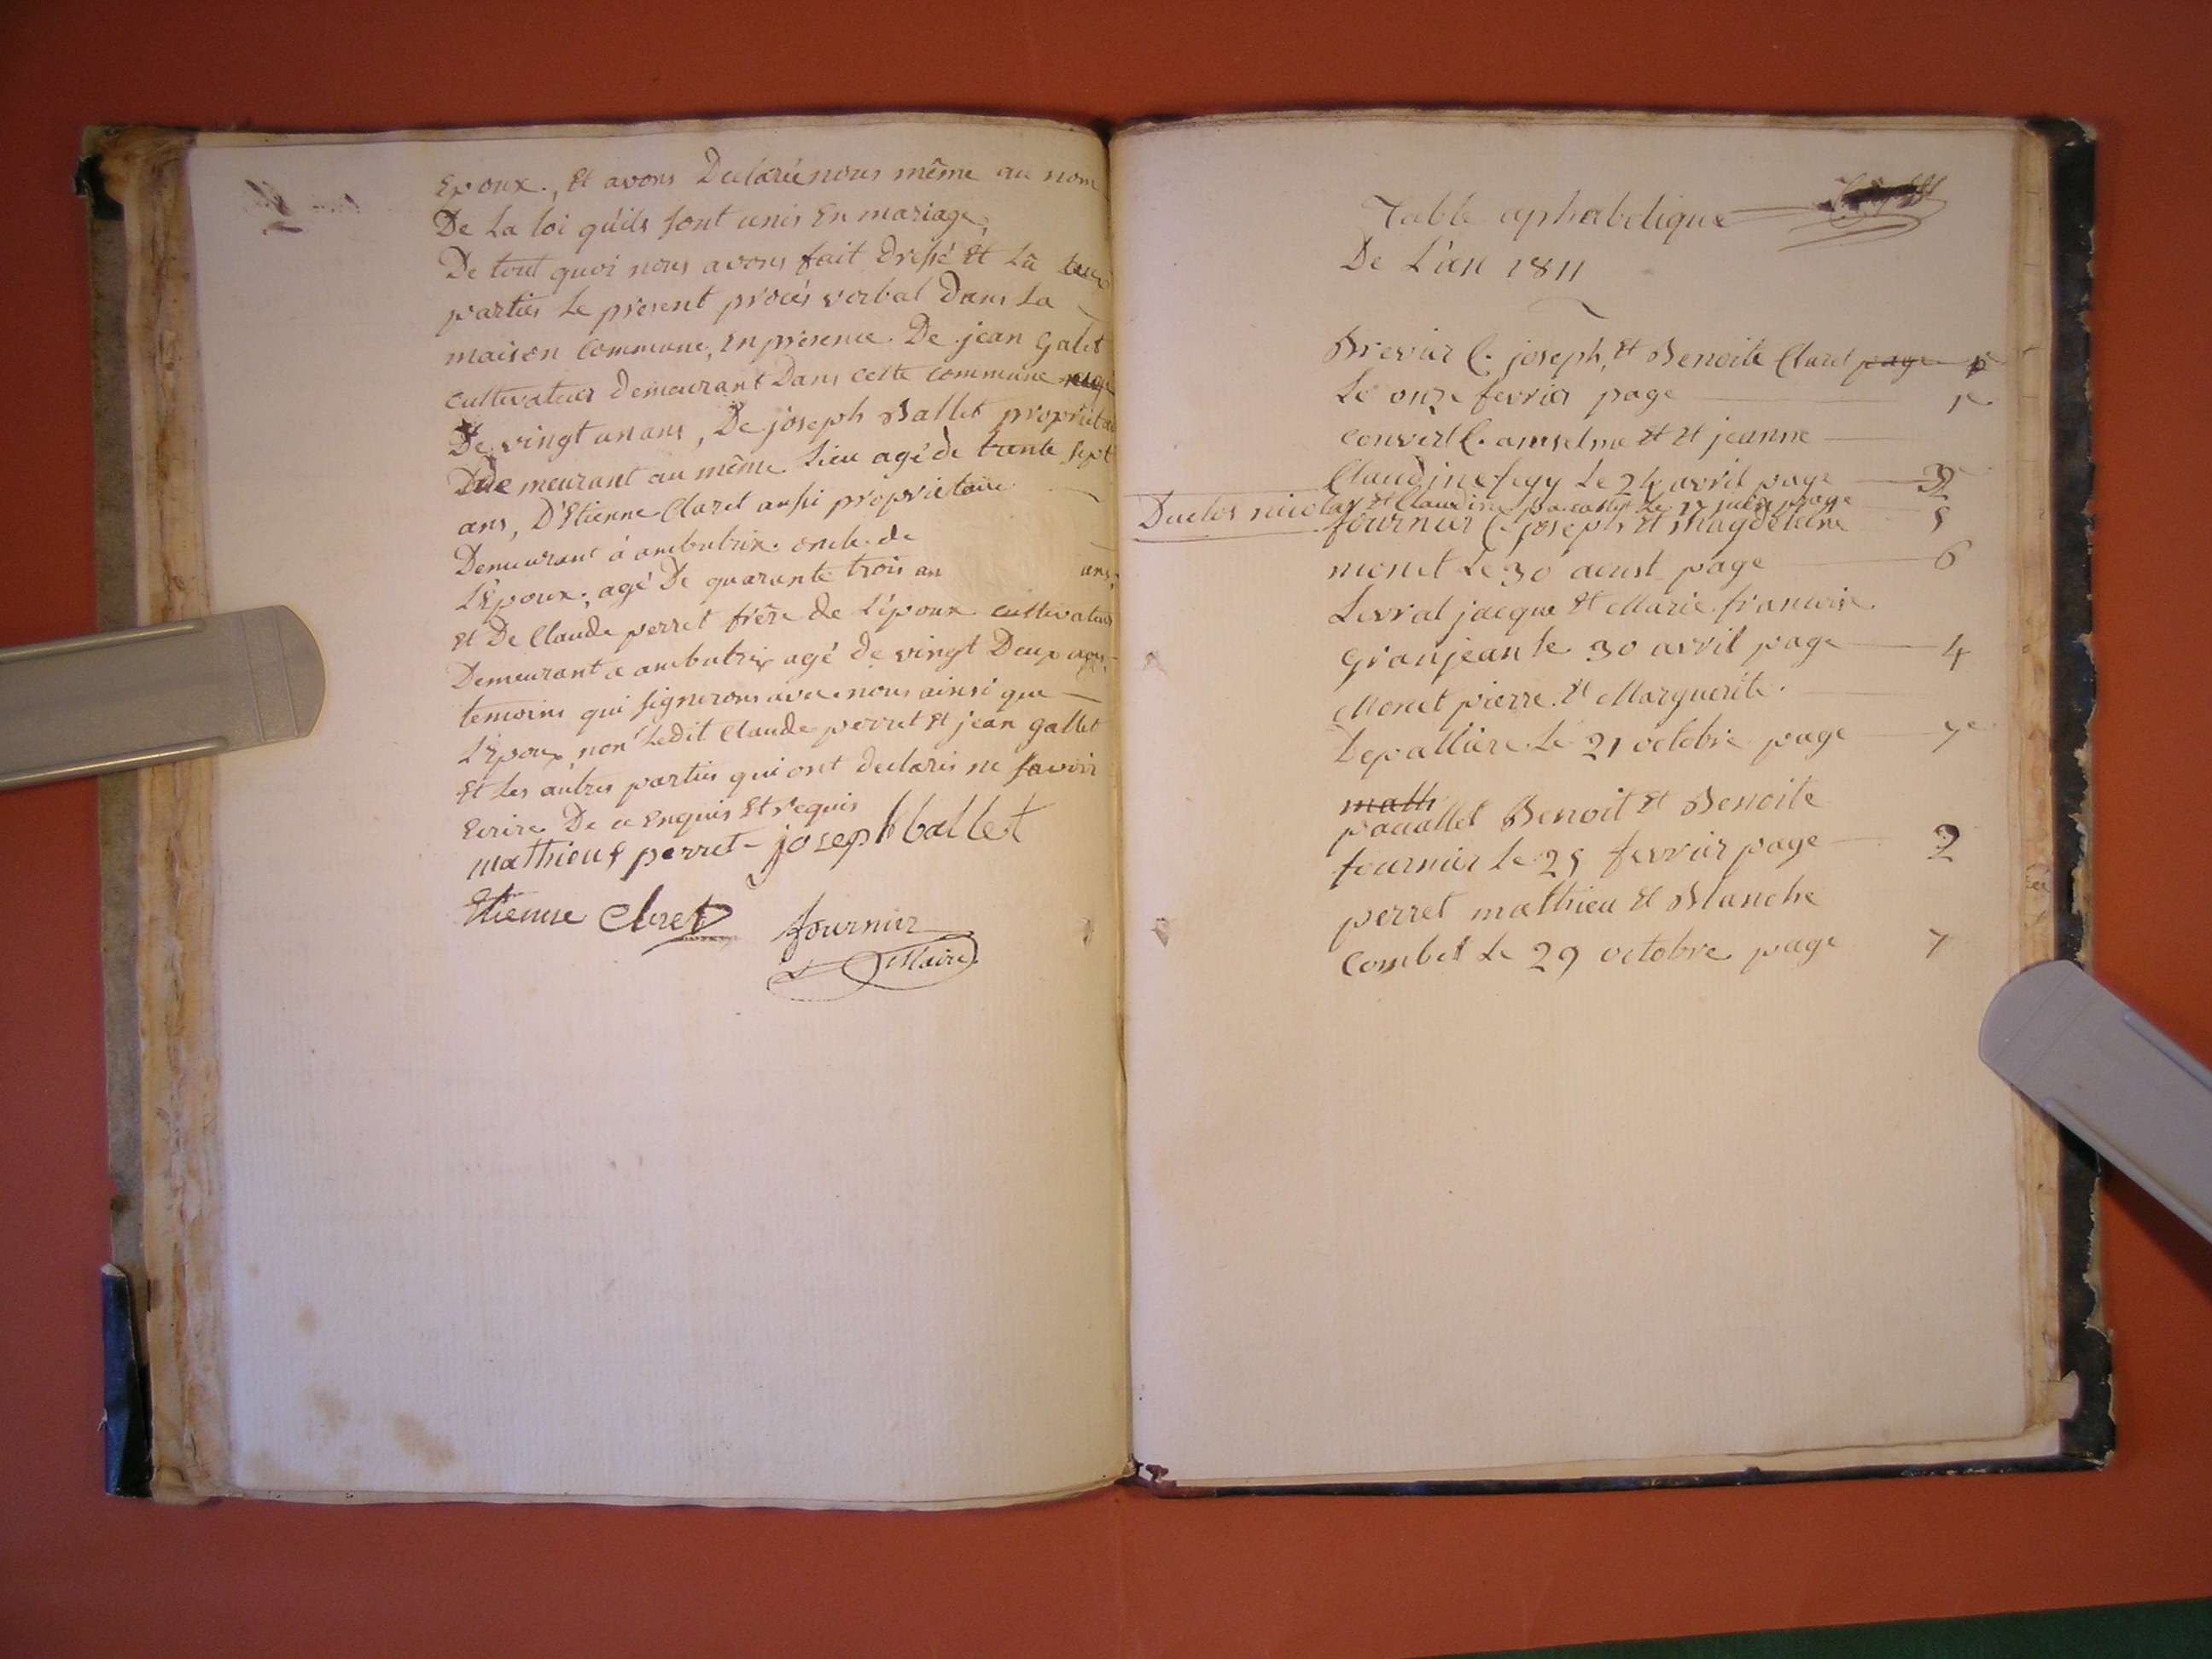 Epoux., Et avons Declarée nous même au nom
De La loi qu'ils sont unis En mariage,
De tout quoi nous avons fait dressé Et Lû aux
parties Le present procès verbal Dans La
maison Commune, en presence De jean Galet
cultivateur demeurant Dans cette commune agé
De vingt un ans, De joseph Ballet proprietai
Demeurant au même Lieu agé de trante sept
ans, D'Etienne Claret aussi proprietaire
Demeurant à ambutrix oncle de
L'Epoux, agé De quarante trois an ans,
Et De Claude perret frère de L'époux cultivateur
Demeurant a ambutrix agé de vingt Deux ans
temoins qui signerons avec nous ainsi que
L'Epoux non Ledit Claude perret Et jean gallet
Et Les autres parties qui ont declarés ne savoir
Ecrire De ce Enquis Et requis
mathieu perret - joseph ballet
Etienne Claret fournier
Maire
Table aphabetique
De L'an 1811
Brevier C. joseph, Et Benoite Claret page
Le onze fevrier page 1e
Convert C. amselme Et Et jeanne
Claudine fegy Le 24 avril page 3
Duclos nicolas Et Claudine Le 17 juin page 5
fournier C. joseph Et Magdeleine
monet Le 30 aoust page 6
Levrat jacque Et Marie francoise
Granjean le 30 avril page 4
Monet pierre Et Marguerite
Depallière Le 21 octobre page 7e
math
pacallet Benoit Et Benoite
fournier Le 25 fevrier page 2
perret mathieu Et Blanche
Combet Le 29 octobre page 7